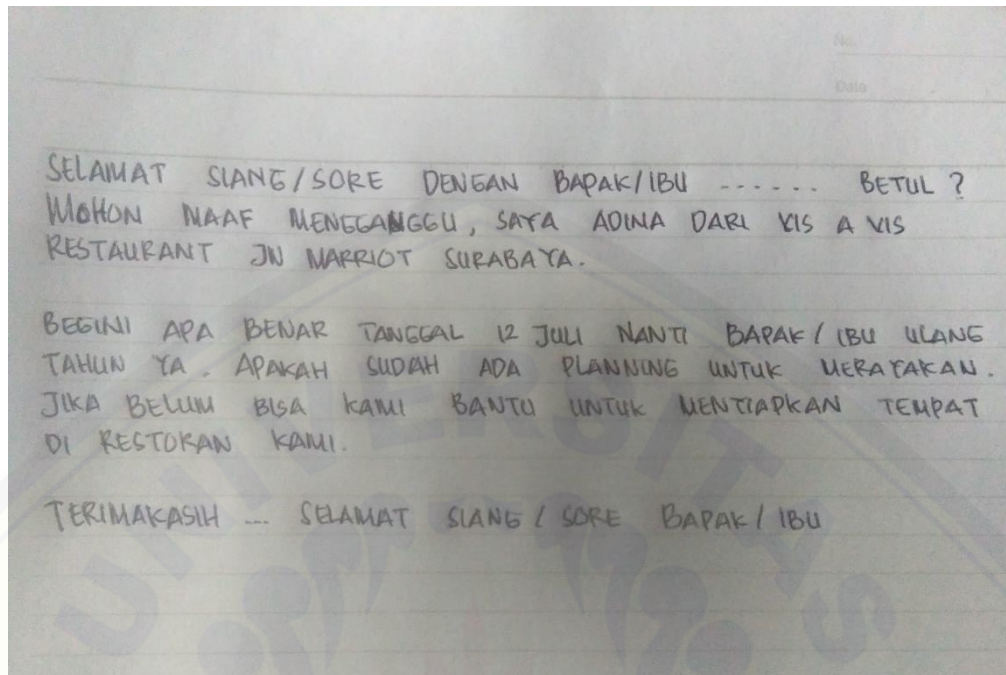 No.
Date
SELAMAT SIANG/SORE DENGAN BAPAK/IBU ...... BETUL ?
MOHON MAAF MENGGANGGU, SAYA ADINA DARI VIS A VIS
RESTAURANT JW MARRIOT SURABAYA.
BEGINI APA BENAR TANGGAL 12 JULI NANTI BAPAK/IBU ULANG
TAHUN YA. APAKAH SUDAH ADA PLANNING UNTUK MERAYAKAN.
JIKA BELUM BISA KAMI BANTU UNTUK MENYIAPKAN TEMPAT
DI RESTORAN KAMI.
TERIMAKASIH ... SELAMAT SIANG / SORE BAPAK/IBU
UNIVERSITAS